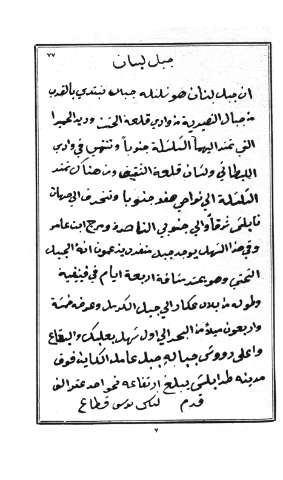 ٧٧
جبل لبنان
ان جبل لبنان هو سلسلة جبال تبتدي بالقرب
من جبال النصيرية من وادي قلعة الحصن ودير الحميرا
التي تمتد اليها السلسلة جنوباً وتنتهي في وادي
الليطاني ولسان قلعة الشقيف ومن هناك تمتد
السلسلة الى نواحي صفد جنوبا وتنحرف الى جهات
نابلس شرقاً والى جنوبي الناصرة ومرج ابن عامر
وفي هذا السهل يوجد جبل منفرد يدعون انه الجبل
وهو يمتد مسافة اربعة ايام في فينيقية
وطوله من بلاد عكار الى جبل الكرمل وعرضه خمسة
واربعون ميلا من البحر الى اول سهل بعلبك والبقاع
واعلى رووس جباله جبل عامله الكاينة فوق
مدينة طرابلس يبلغ ارتفاعه نحو احد عشر الف
قدم
٧